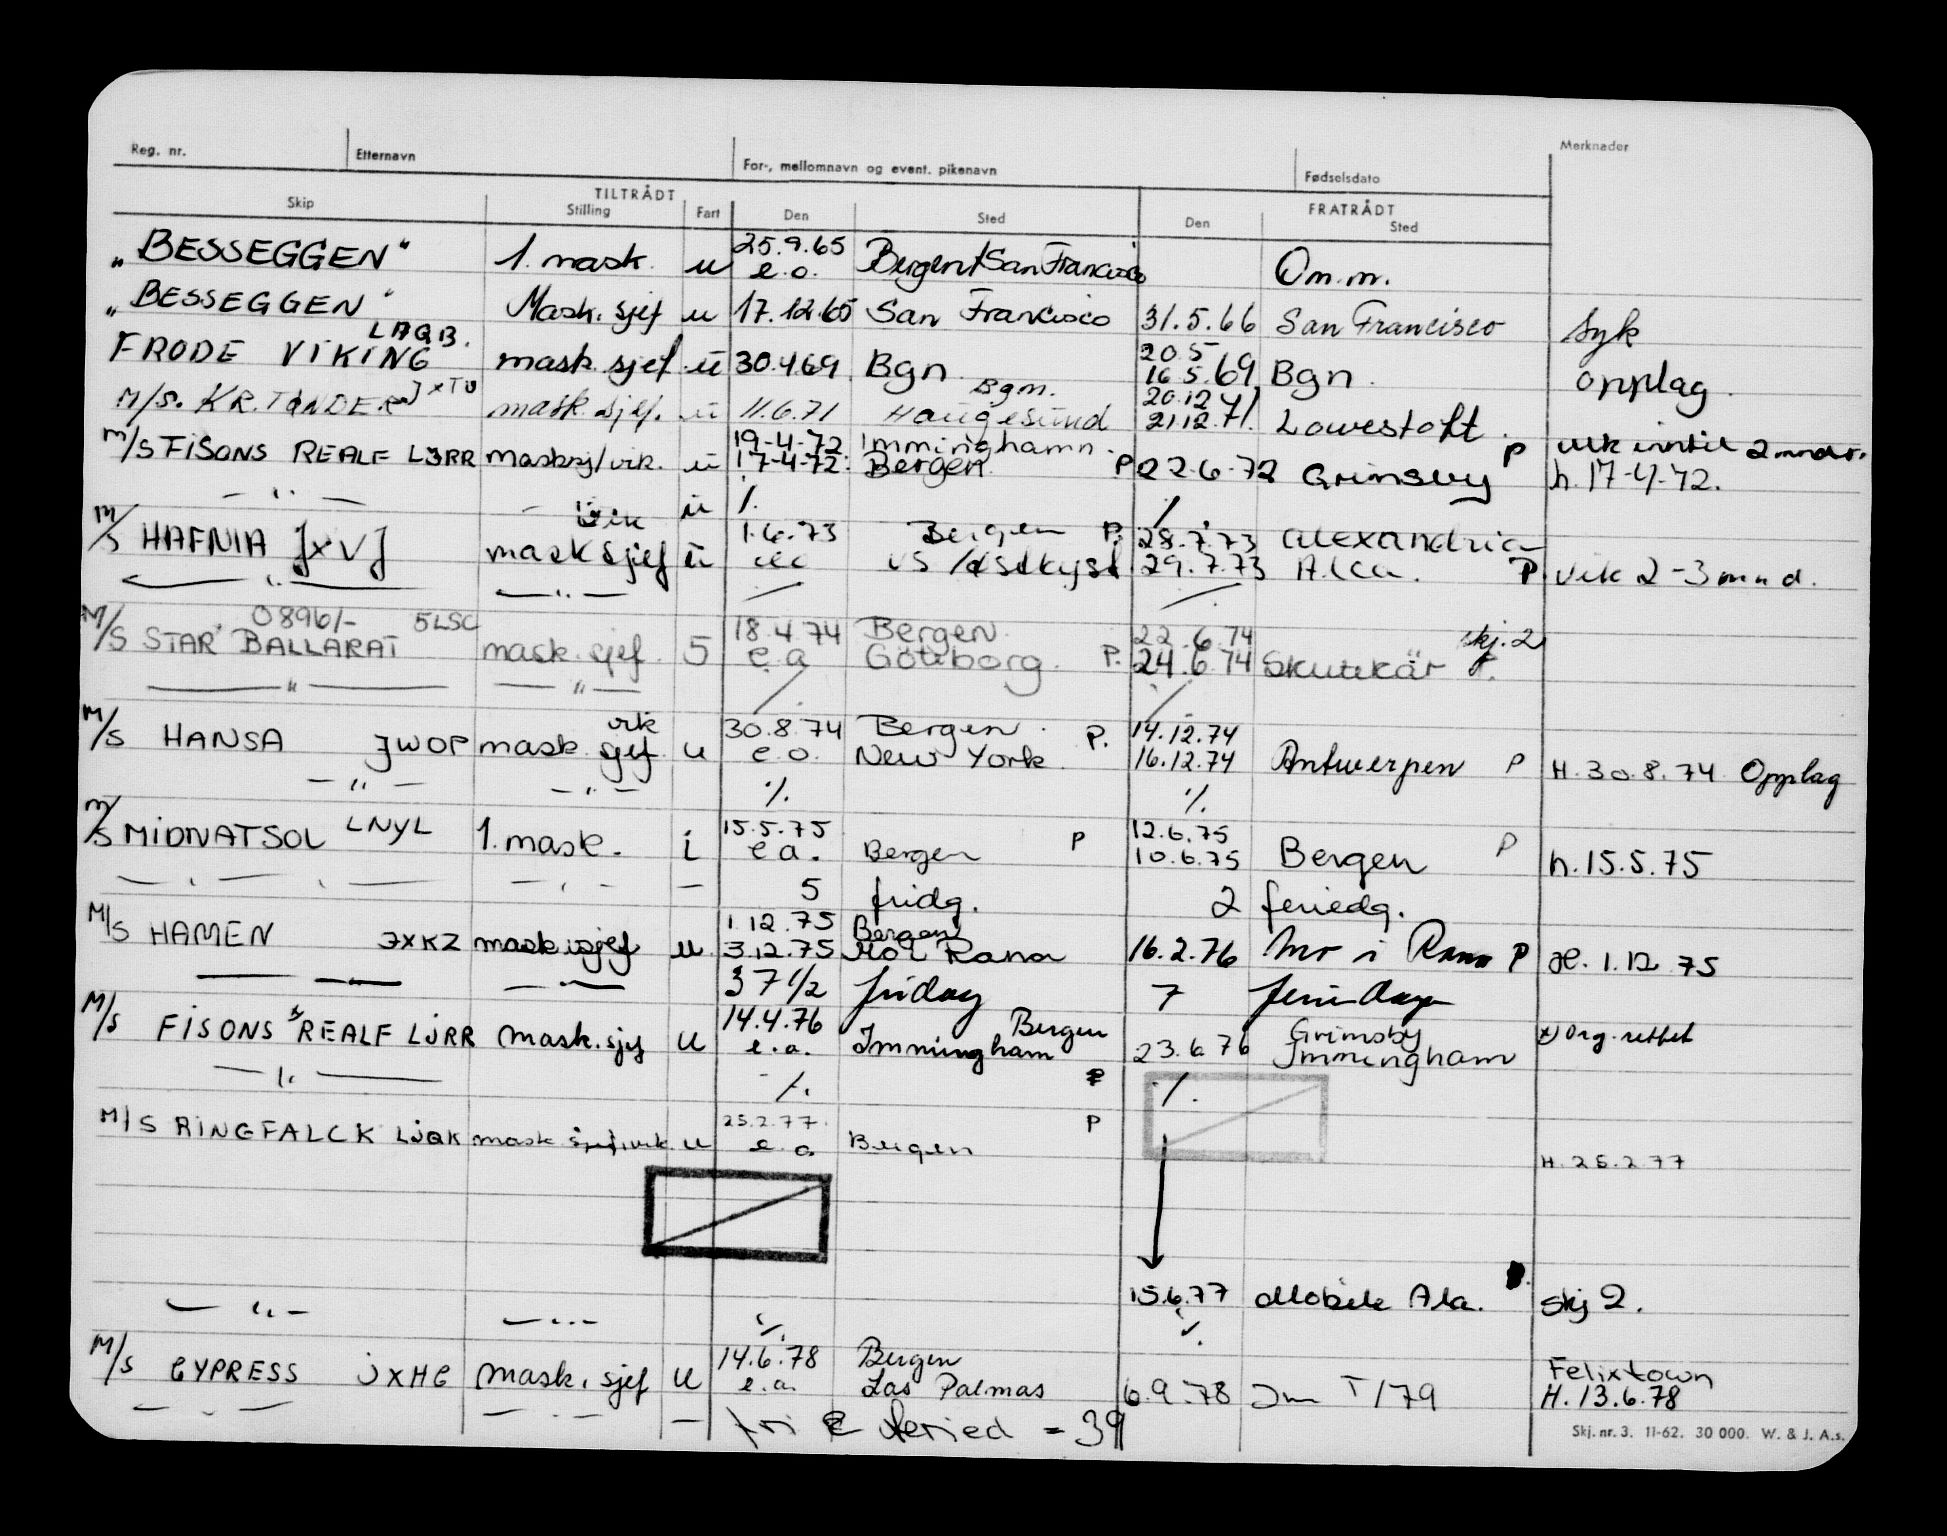 Reg. nr. Etternavn For-, mellomnavn og event. pikenavn Fødselsdato Merknader
TILTRÅDT FRATRÅDT
Skip Stilling Fart Den Sted Den Sted
25.9.65
"BESSEGGEN" 1. mask. u e.o. Bergen/San Francisco Om.m.
"BESSEGGEN" Mask. sjef u 17.12.65 San Francisco 31.5.66 San Francisco Syk
LAQB. 20.5
FRODE VIKING mask. sjef ü 30.4.69 Bgn 16.5.69 Bgn. opplag
JXTU Bgn. 20.12
M/S. KR. TØNDER mask. sjef. ü 11.6.71 Haugesund 21.12.71. Lowestoft.
19-4-72. Imminghamn. P vik inntil 2 mndr.
M/S FISONS REALF LJRR masksj/vik. ü 17-4-72. Bergen P 22-6-72 Grimsby h. 17-4-72.
— " — — " ü %. /
vik 1.6.73 Bergen P. 28.7.73 Alexandria
M/S HAFNIA JXVJ mask sjef ü US/østkyst 29.7.73 P. vik 2-3 mnd.
— " — — " — / /
0896/- 5LSC 18.4.74 Bergen. 22.6.74 skj. 2
M/S STAR BALLARAT mask. sjef. 5 e.a Göteborg. P. 24.6.74 Skutskär P.
— " — — " — / /
vik 30.8.74 Bergen. P. 14.12.74
M/S HANSA JWOP mask. sjef u e.o. New York 16.12.74 Antwerpen P H. 30.8.74 Opplag
— " — — " — %. %.
LNYL 15.5.75 P 12.6.75 P
M/S MIDNATSOL 1. mask. i e.a. Bergen 10.6.75 Bergen h. 15.5.75
— " — — " — — 5 fridg. 2 feriedg.
1.12.75 Bergen
M/S HAMEN JXKZ mask.sjef u. 3.12.75 Mo i Rana 16.2.76 Mo i Rana P H. 1.12.75
— — — 37 1/2 fridag 7 feriedager
14.4.76 Bergen Grimsby x) Org. rettet
M/S FISONS REALF LJRR Mask. sjef u e.a. Immingham 23.6.76 Immingham
— " — %. P %.
25.2.77. P
M/S RINGFALCK LJQK mask sjef/vik. u e.a Bergen
H. 25.2.77
15.6.77 Mobile Ala. skj 2.
— " — — " — %. %.
14.6.78 Bergen Felixtown
M/S CYPRESS JXHG Mask. sjef u e.a. Las Palmas 6.9.78 T/79 H. 13.6.78
— " — — " — — fri & feried = 39
Skj. nr. 3. 11-62. 30 000. W. & J. A.s.